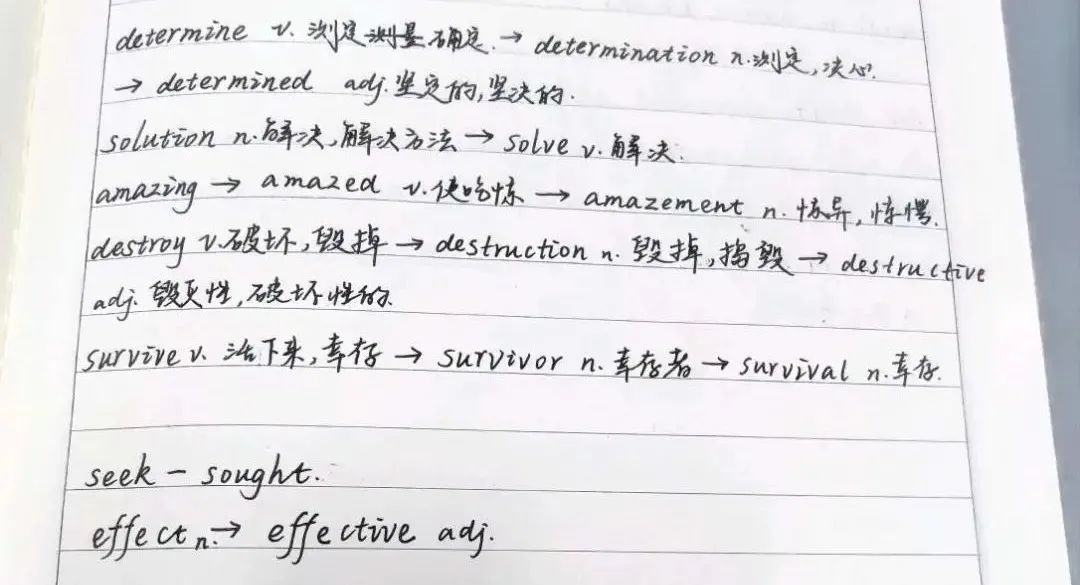 determine v. 测定 测量 确定. → determination n. 测定, 决心.
→ determined adj. 坚定的, 坚决的.
solution n. 解决, 解决方法 → solve v. 解决.
amazing → amazed v. 使吃惊 → amazement n. 惊异, 惊愕.
destroy v. 破坏, 毁掉 → destruction n. 毁掉, 捣毁 → destructive
adj. 毁灭性, 破坏性的.
survive v. 活下来, 幸存 → survivor n. 幸存者 → survival n. 幸存.
seek - sought.
effect n. → effective adj.